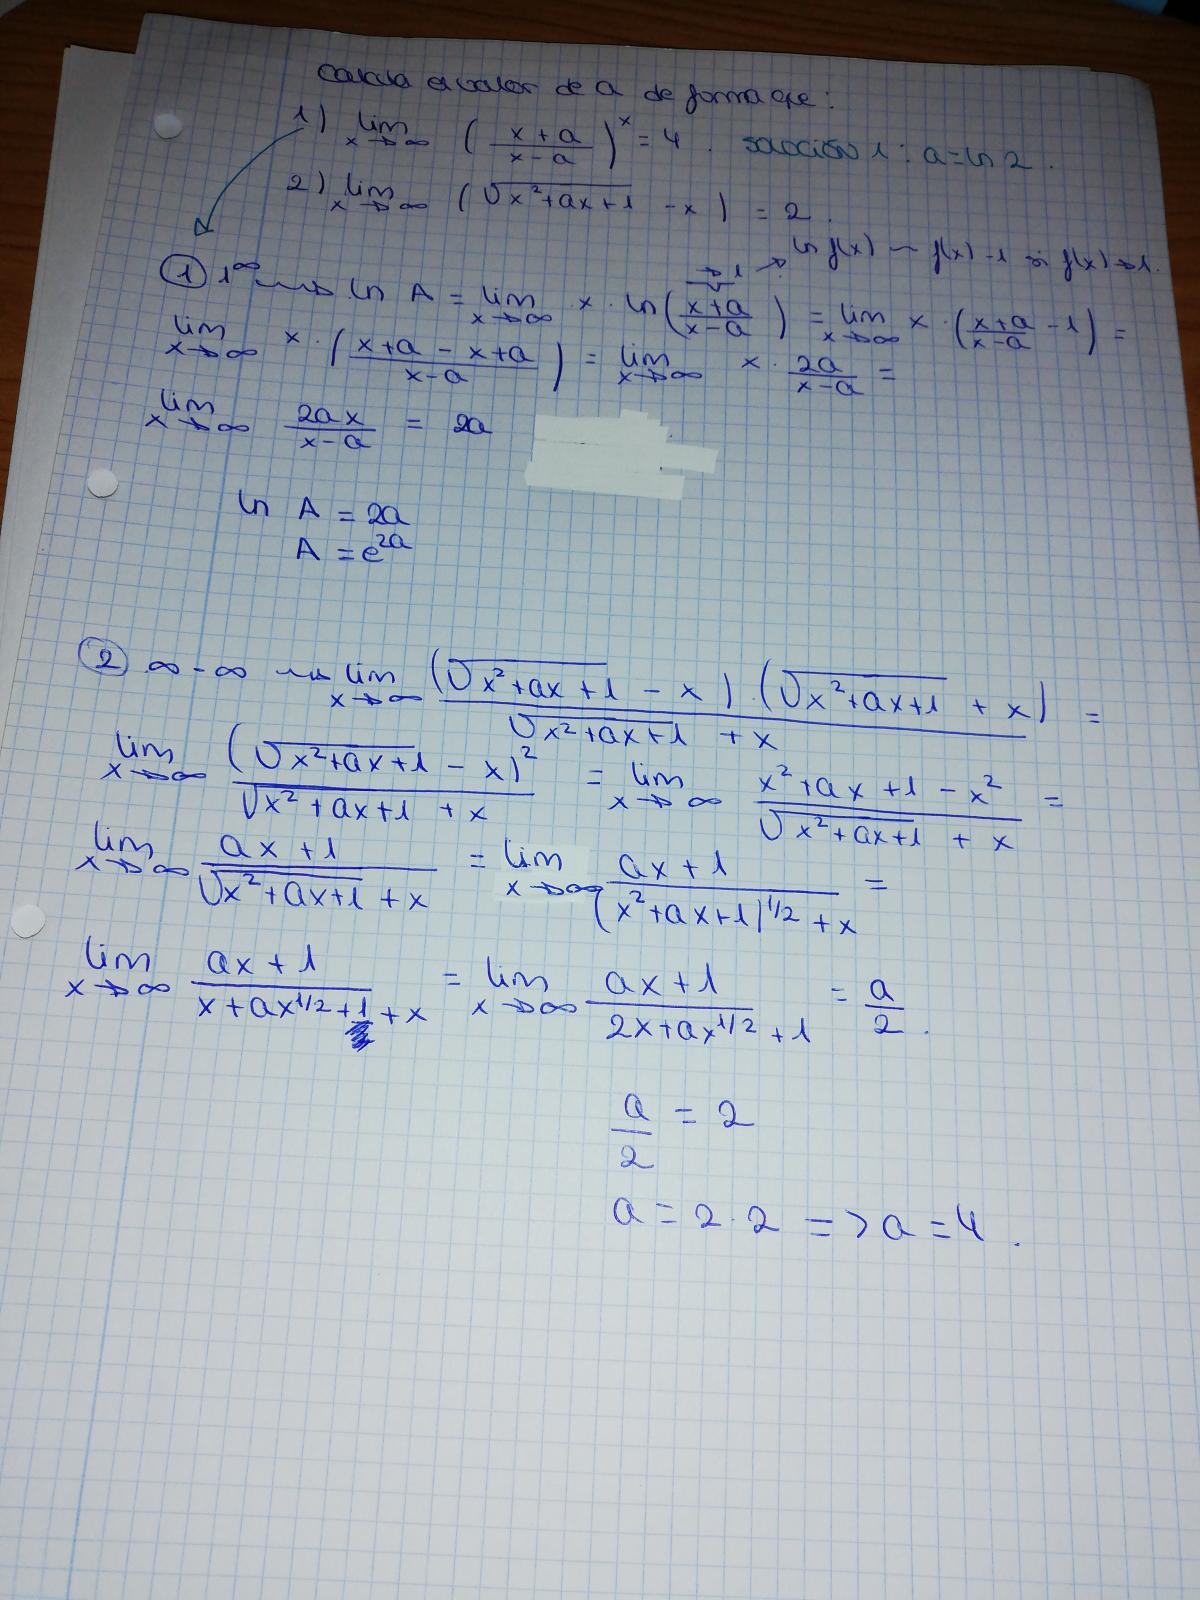 Calcula el valor de a de forma que:
1) lim x→∞ ( (x+a)/(x-a) )^x = 4. Solución 1: a = ln 2.
2) lim x→∞ (√(x²+ax+1) - x) = 2.
ln f(x) ~ f(x)-1 si f(x)→1.
→1
① 1^∞ ⇝ ln A = lim x→∞ x · ln( (x+a)/(x-a) ) = lim x→∞ x · ( (x+a)/(x-a) - 1 ) =
lim x→∞ x · ( (x+a-x+a)/(x-a) ) = lim x→∞ x · 2a/(x-a) =
lim x→∞ 2ax/(x-a) = 2a
ln A = 2a
A = e^2a
② ∞-∞ ⇝ lim x→∞ (√(x²+ax+1) - x) · (√(x²+ax+1) + x) / (√(x²+ax+1) + x) =
lim x→∞ (√(x²+ax+1) - x)² / (√(x²+ax+1) + x) = lim x→∞ (x²+ax+1-x²) / (√(x²+ax+1) + x) =
lim x→∞ (ax+1) / (√(x²+ax+1) + x) = lim x→∞ (ax+1) / ((x²+ax+1)^1/2 + x) =
lim x→∞ (ax+1) / (x+ax^1/2+1+x) = lim x→∞ (ax+1) / (2x+ax^1/2+1) = a/2.
a/2 = 2
a = 2·2 => a = 4.